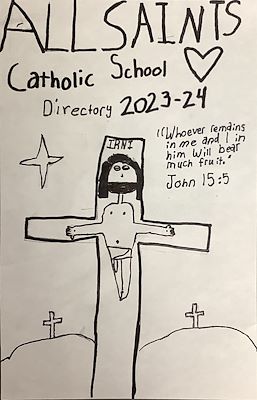 ALL SAINTS
Catholic School
Directory 2023-24
"Whoever remains
in me and I in
him will bear
much fruit."
John 15:5
IRNI